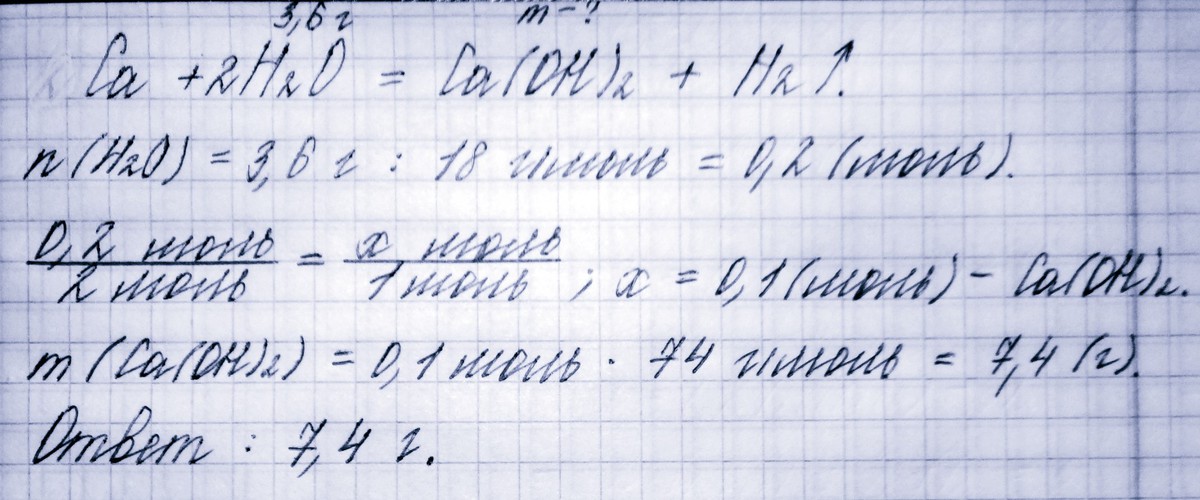 3,6 г m - ?
Ca + 2H₂O = Ca(OH)₂ + H₂↑.
n(H₂O) = 3,6 г : 18 г/моль = 0,2 (моль).
0,2 моль / 2 моль = x моль / 1 моль ; x = 0,1 (моль) - Ca(OH)₂.
m(Ca(OH)₂) = 0,1 моль · 74 г/моль = 7,4 (г).
Ответ : 7,4 г.